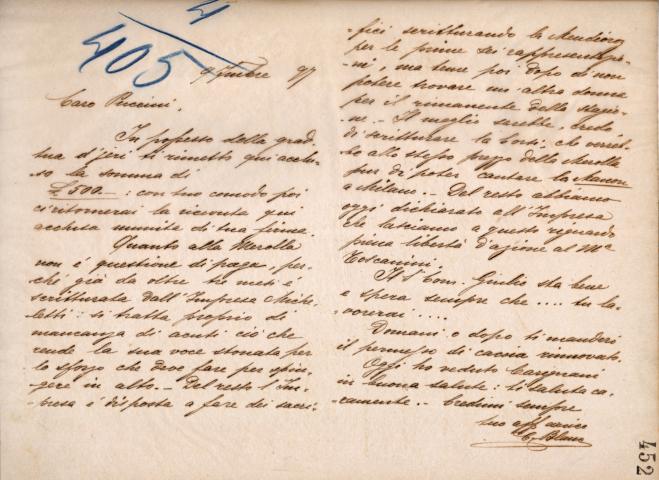 4
405
9 9mbre 97
Caro Puccini,
In possesso della grad.
tua d'jeri ti rimetto qui acclu-
so la somma di
£500.— : con tuo comodo poi
ci ritornerai la ricevuta qui
acclusa munita di tua firma.
Quanto alla Merolla
non è questione di paga, per-
ché già da oltre tre mesi è
scritturata dall'Impresa Miche-
letti: si tratta proprio di
mancanza di acuti ciò che
rende la sua voce stonata per
lo sforzo che deve fare per spin-
gere in alto. — Del resto l'Im-
presa è disposta a fare dei sacri-
fici scritturando la
per le prime sei rappresentazio-
ni, ma teme poi dopo di non
potere trovare un'altra donna
per il rimanente della stagio-
ne. — Il meglio sarebbe, credo
di scritturare la che verreb-
be allo stesso prezzo della Merolla
pur di poter cantare la Manon
a Milano. — Del resto abbiamo
oggi dichiarato all'Impresa
che lasciamo a questo riguardo
piena libertà d'azione al Mo
Toscanini.
Il Sr Com. Giulio sta bene
e spera sempre che .... tu la-
vorerai ....
Domani o dopo ti manderò
il permesso di caccia rinnovato.
Oggi ho veduto Carignani
in buona salute: ti saluta ca-
ramente. — Credimi sempre
tuo aff amico
C. Blanc
452